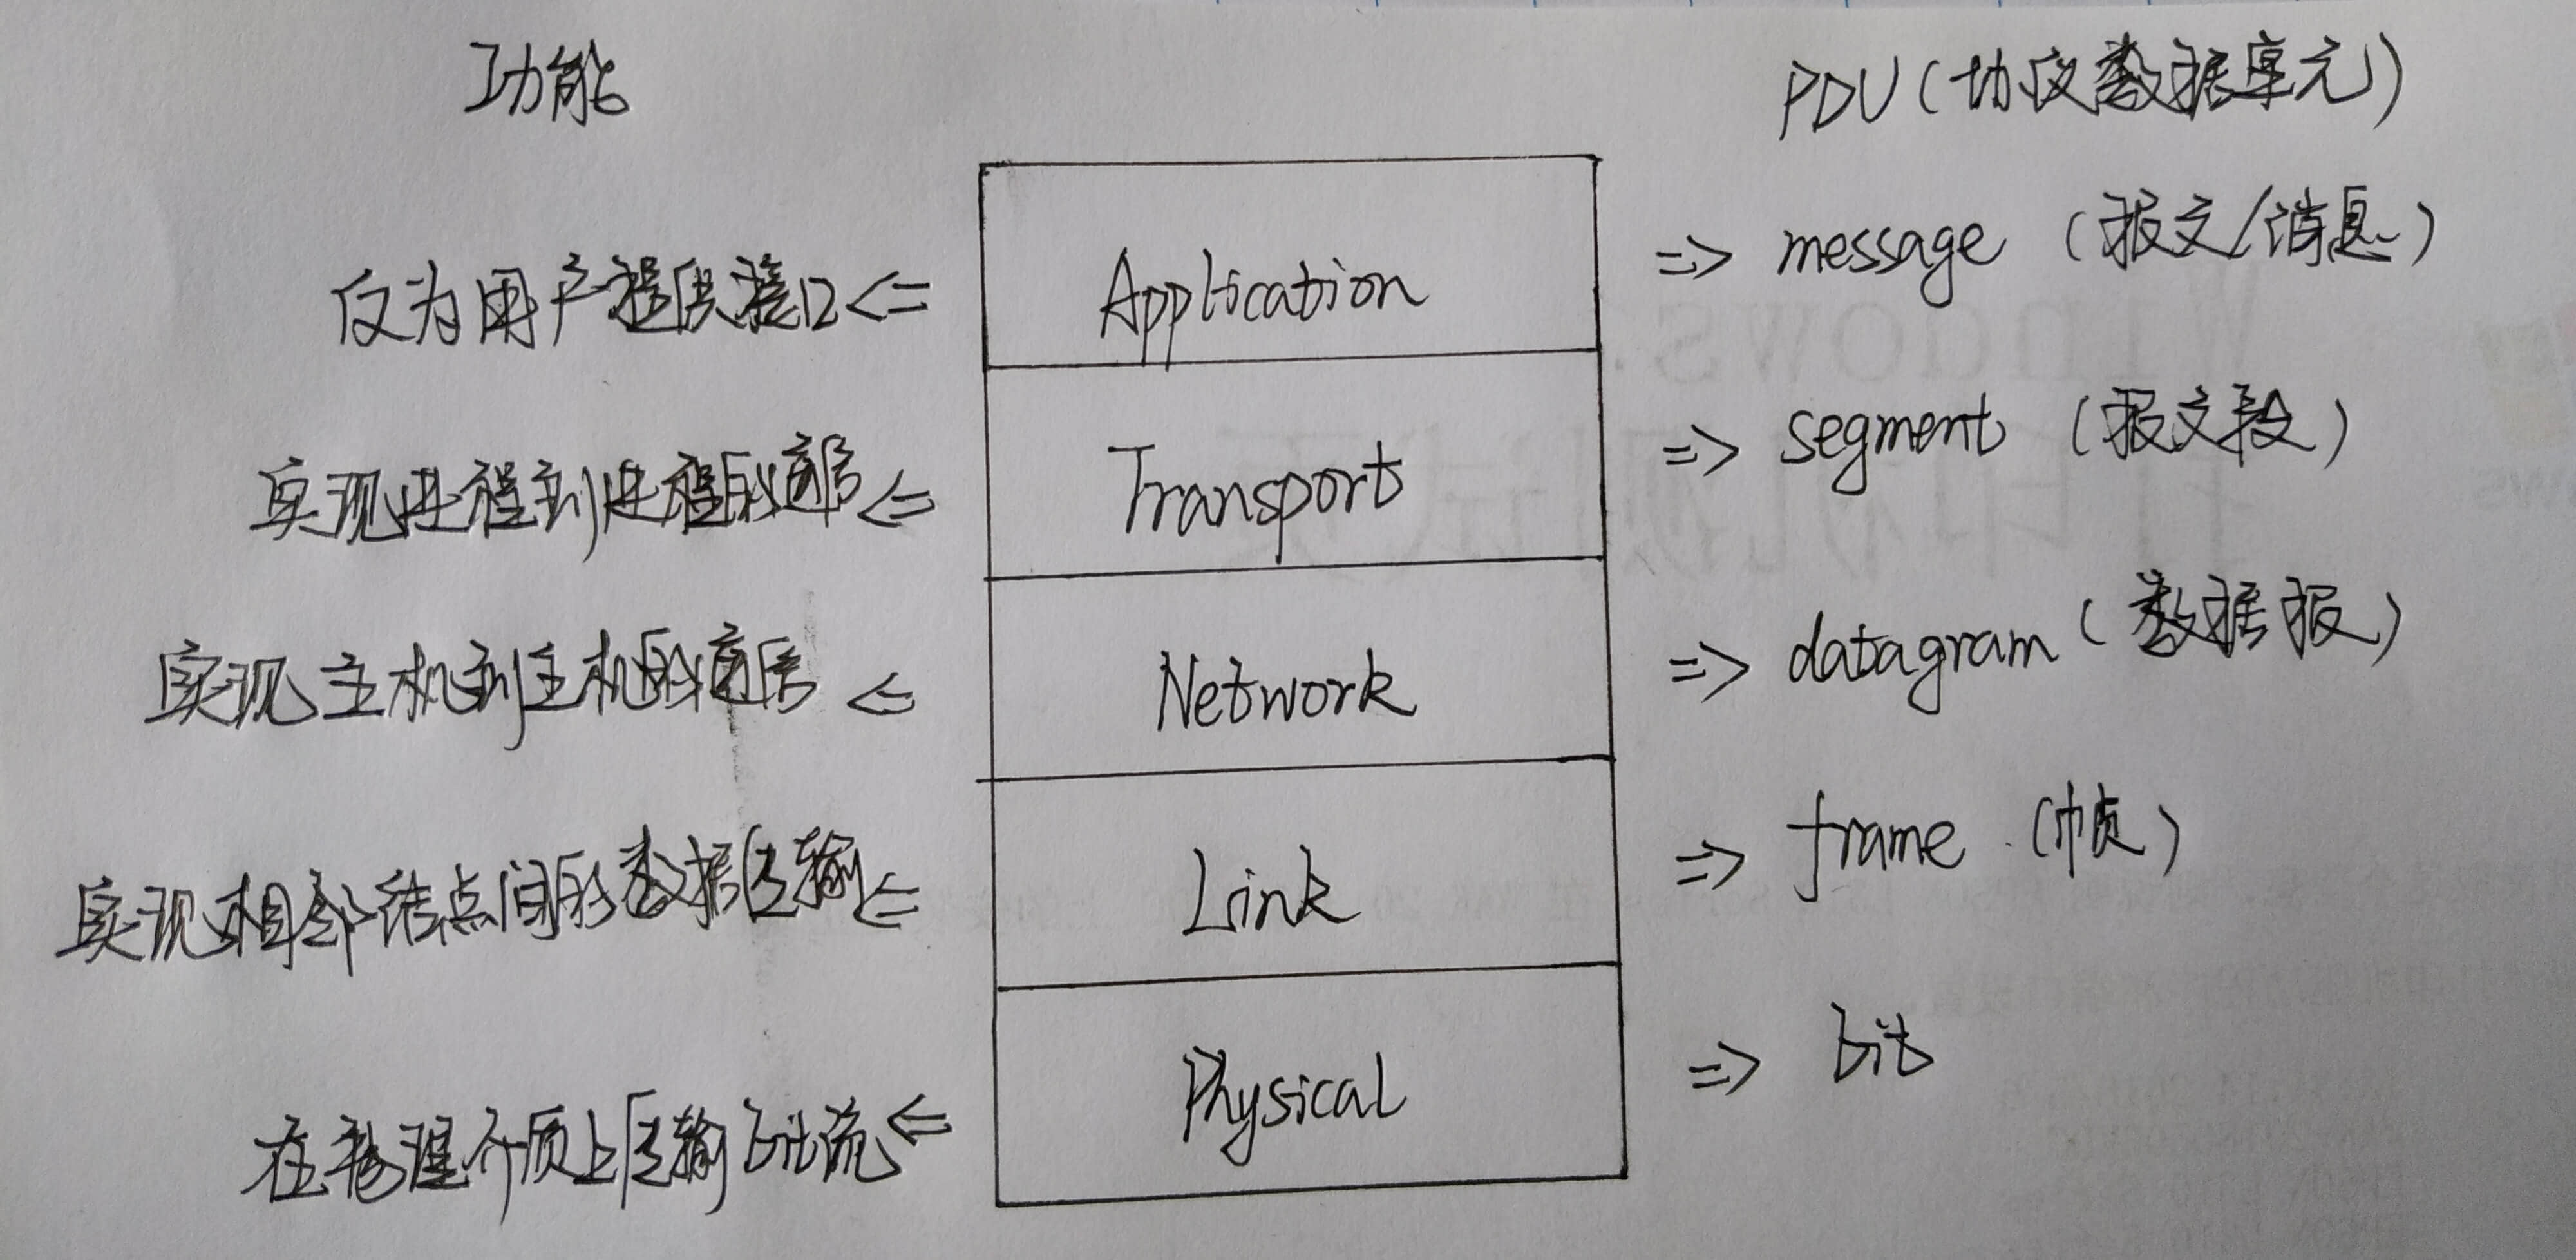 功能
PDU(协议数据单元)
仅为用户提供接口 <= Application => message (报文/消息)
实现进程到进程的通信 <= Transport => segment (报文段)
实现主机到主机的通信 <= Network => datagram (数据报)
实现相邻结点间的数据传输 <= Link => frame (帧)
在物理介质上传输bit流 <= Physical => bit